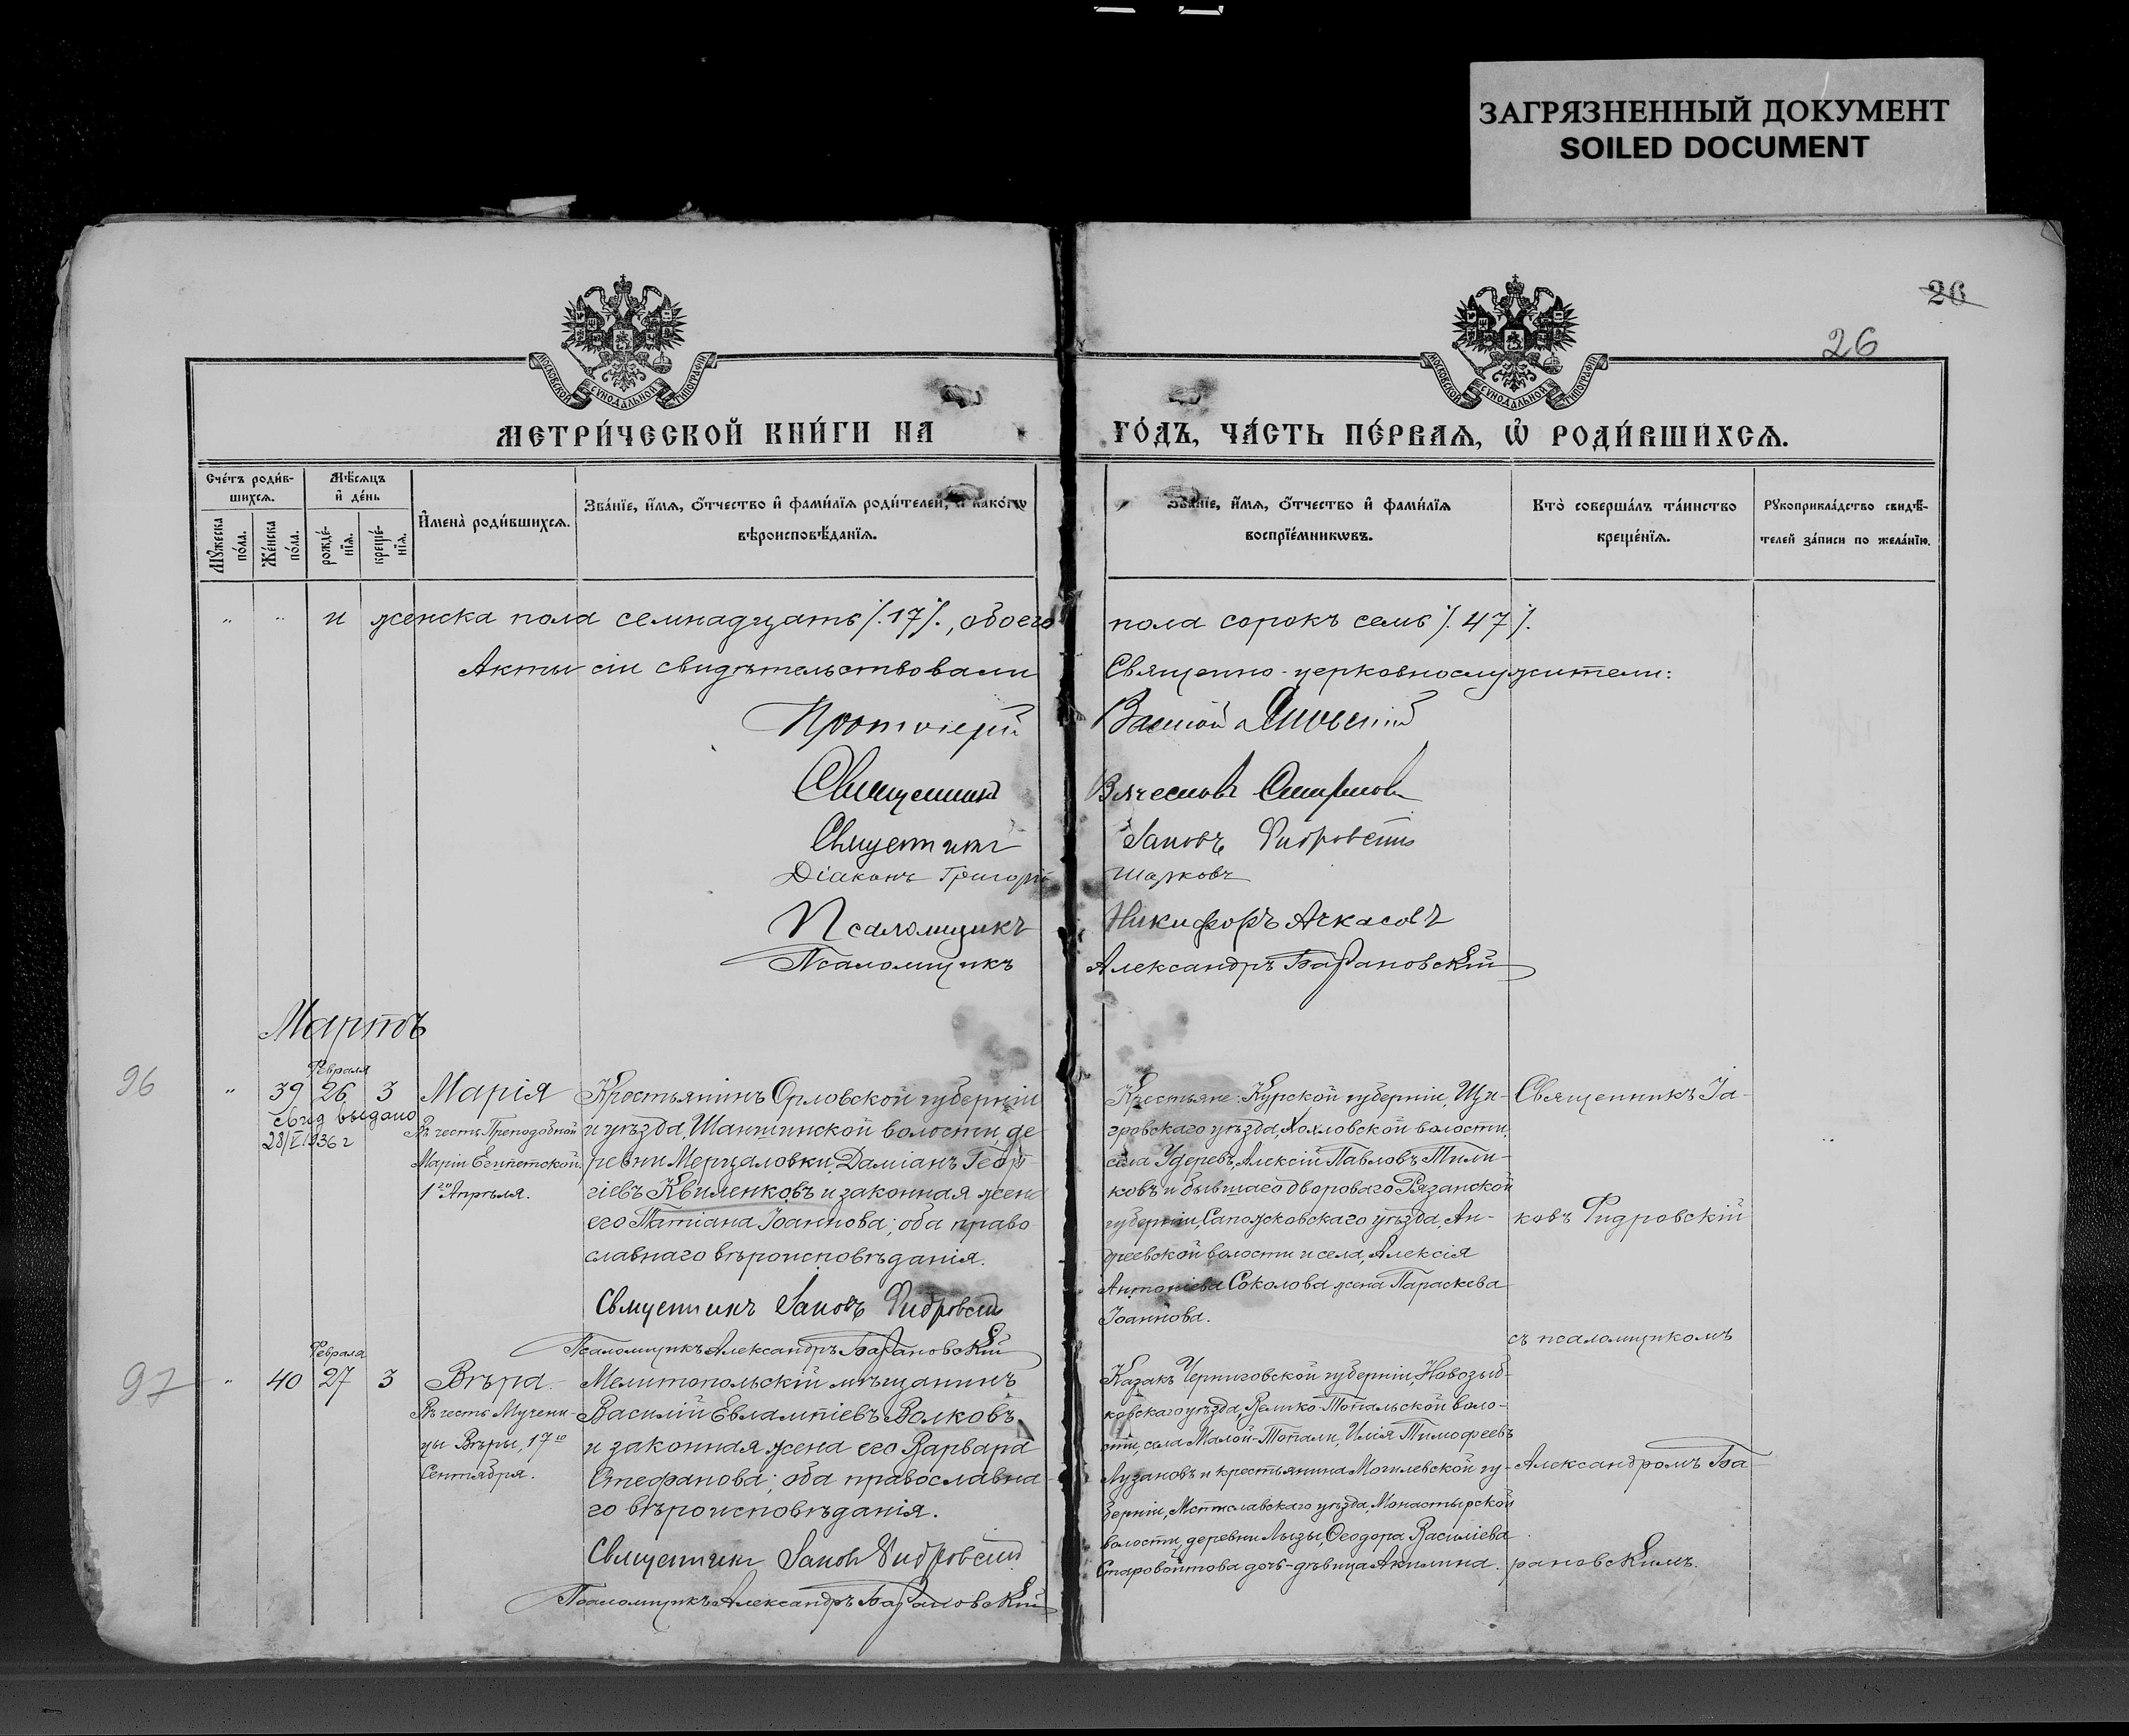 ЗАГРЯЗНЕННЫЙ ДОКУМЕНТ
SOILED DOCUMENT
26
26
МОСКОВСКОЙ СѴНОДАЛЬНОЙ ТИПОГРАФІИ
МОСКОВСКОЙ СѴНОДАЛЬНОЙ ТИПОГРАФІИ
МЕТРИ́ЧЕСКОЙ КНИ́ГИ НА
ГО́ДЪ, ЧА́СТЬ ПЕ́РВАѦ, Ѽ РОДИ́ВШИХСѦ.
Сче́тъ роди́в-
шихсѧ.
Мꙋ́жеска
по́ла.
Же́нска
по́ла.
Мѣ́сѧцъ
и҆ де́нь
рожде́-
нїѧ.
креще́-
нїѧ.
И҆мена̀ роди́вшихсѧ.
Зва́нїе, и҆́мѧ, ѻ҆́тчество и҆ фами́лїѧ роди́телей, и҆ како́гѡ
вѣроисповѣ́данїѧ.
Зва́нїе, и҆́мѧ, ѻ҆́тчество и҆ фами́лїѧ
воспрїе́мникѡвъ.
Кто̀ соверша́лъ та́инство
креще́нїѧ.
Рꙋкоприкла́дство свидѣ́-
телей за́писи по жела́нїю.
" " и женска пола семнадцать /.17/., обоего
пола сорокъ семь /.47/.
Акты сіи свидѣтельствовали
Священно-церковнослужители:
Протоіерей
Василій
Священникъ
Вячеславъ Смирновъ
Священникъ
Іаковъ Фидровскій
Діаконъ Григорій
Шарковъ
Псаломщикъ
Никифоръ Ачкасовъ
Псаломщикъ
Александръ Барановскій
Мартъ
96
"
39
Февраля
26
3
свид выдано
28/V 1936 г
Марія
Въ честь Преподобной
Маріи Египетской.
1го Апрѣля.
Крестьянинъ Орловской губерніи
и уѣзда, Шаншинской волости, де
ревни Мерцаловки, Даміанъ Геор-
гіевъ Квиленковъ и законная жена
его Татіана Іоаннова; оба право-
славнаго вѣроисповѣданія.
Священникъ Іаковъ Фидровскій
Псаломщикъ Александръ Барановскій
Крестьяне: Курской губерніи, Щи-
гровскаго уѣзда, Хохловской волости,
села Удеревъ, Алексій Павловъ Тили-
ковъ и бывшаго двороваго Рязанской
губерніи, Сапожковскаго уѣзда, Ан-
дреевской волости и села, Алексія
Антоніева Соколова жена Параскева
Іоаннова.
Священникъ Іа-
ковъ Фидровскій
съ псаломщикомъ
Александромъ Ба-
рановскимъ.
97
"
40
Февраля
27
3
Вѣра.
Въ честь Мучени-
цы Вѣры, 17го
Сентября.
Мелитопольскій мѣщанинъ
Василій Евлампіевъ Волковъ
и законная жена его Варвара
Стефанова; оба православна-
го вѣроисповѣданія.
Священникъ Іаковъ Фидровскій
Псаломщикъ Александръ Барановскій
Казакъ Черниговской губерніи, Новозыб-
ковскаго уѣзда, Велико-Топальской воло-
сти, села Малой-Топали, Илія Тимофеевъ
Лузановъ и крестьянина Могилевской гу-
берніи, Мстиславскаго уѣзда, Монастырской
волости, деревни Лызы, Ѳеодора Василіева
Старовойтова дочь-дѣвица Акилина.